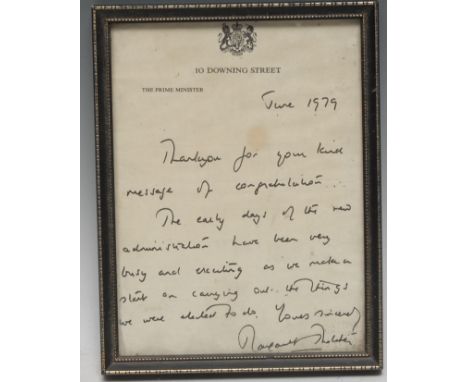 10 DOWNING STREET
THE PRIME MINISTER
June 1979
Thankyou for your kind
message of congratulation...
The early days of the new
administration have been very
busy and exciting as we make a
start on carrying out the things
we were elected to do. Yours sincerely
Margaret Thatcher